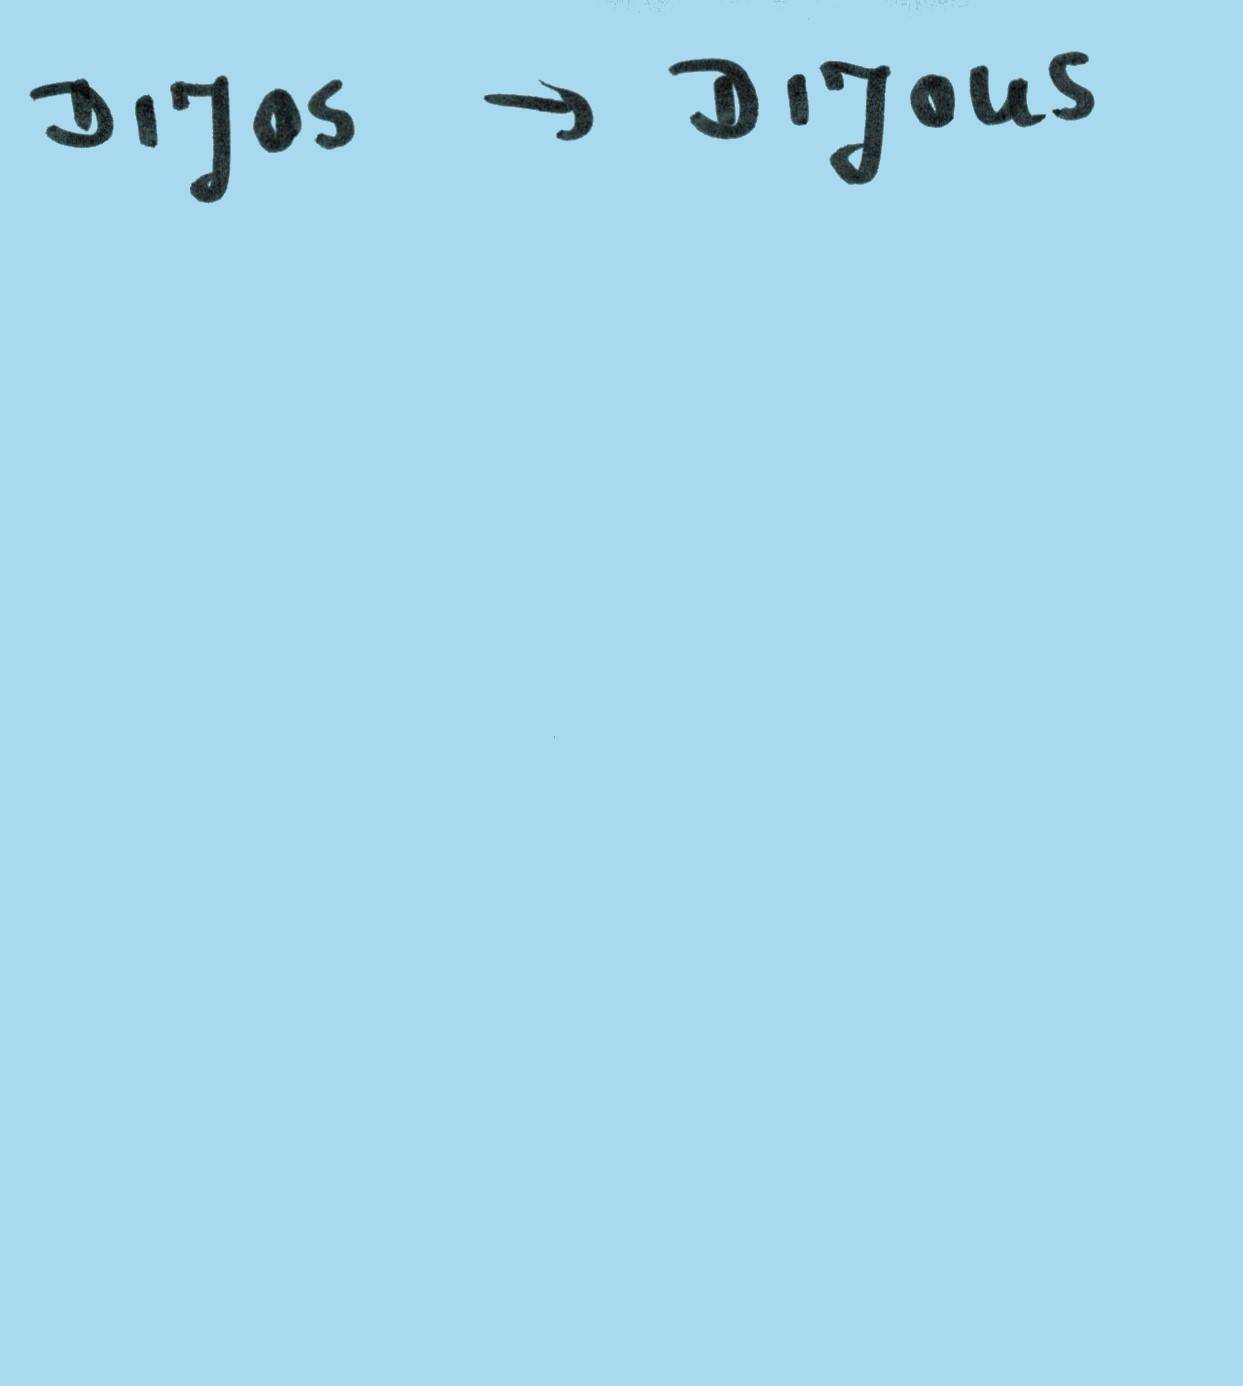 Dijos → Dijous